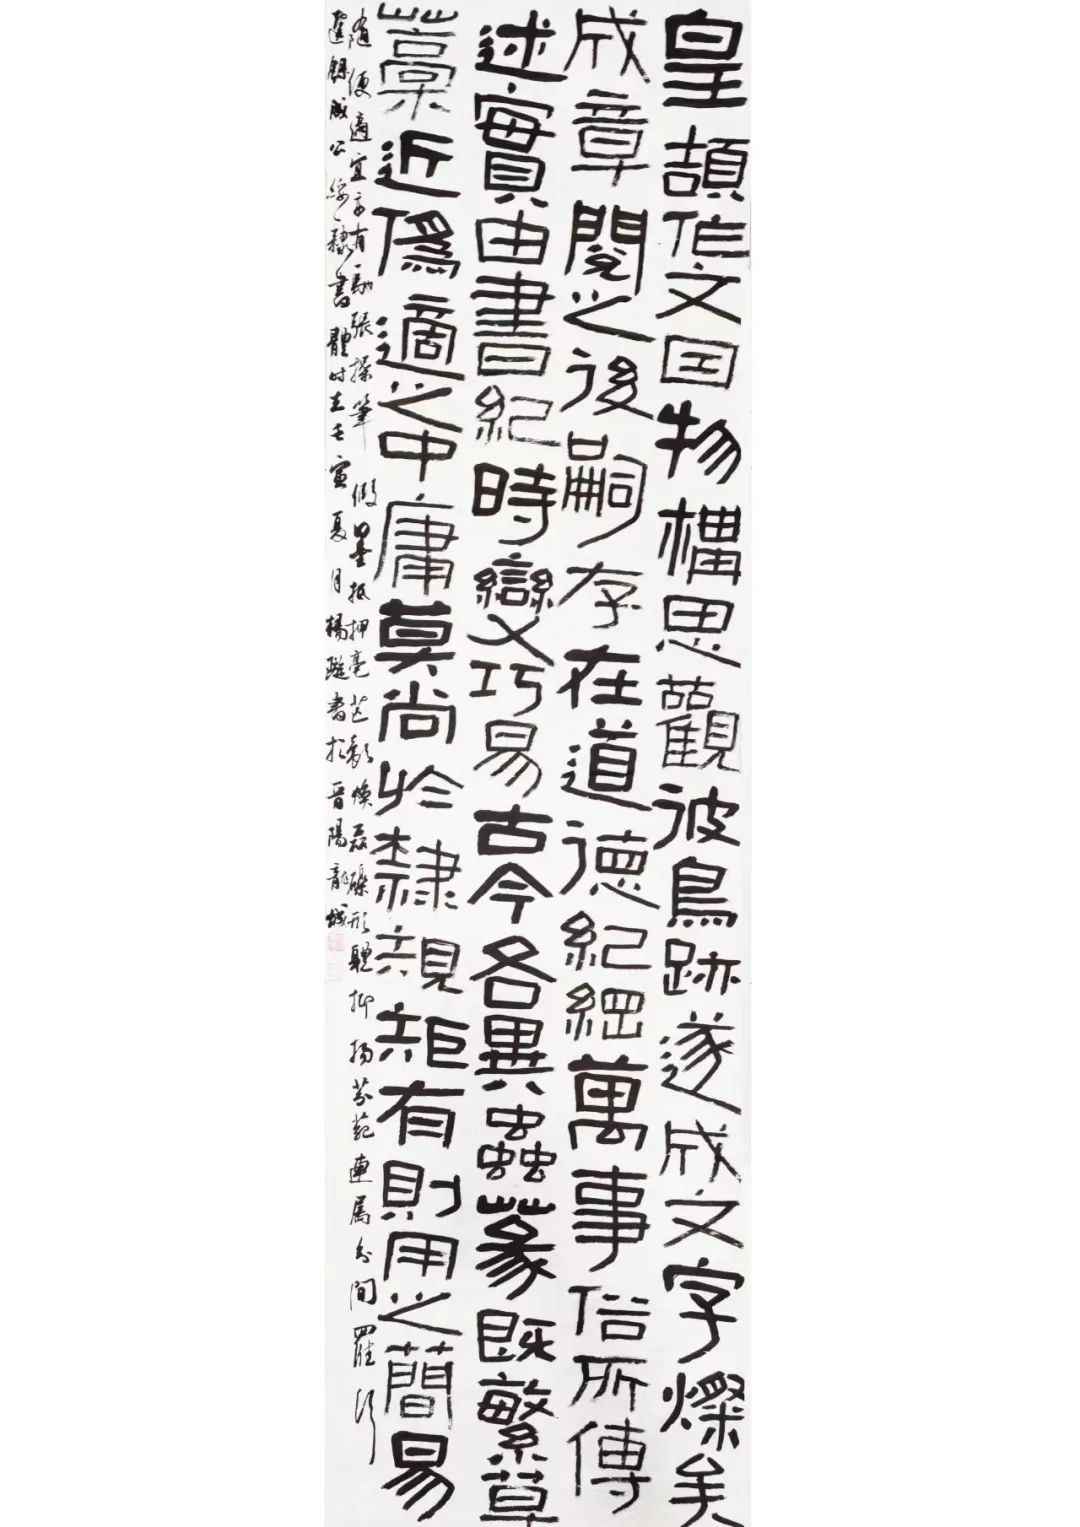 皇頡作文因物構思觀彼鳥跡遂成文字燦矣
成章閱之後嗣存在道德紀綱萬事俗所傳
述實由書紀時變巧易古今各異蟲篆既繁草
藁近偽適之中庸莫尚於隸規矩有則用之簡易
隨便適宜亦有弛張操筆假墨抵押毫芒彪煥磊磥形體抑揚芬葩連属分間羅行
選錄成公綏隸書體時在壬寅夏月楊 書於晋陽龍城